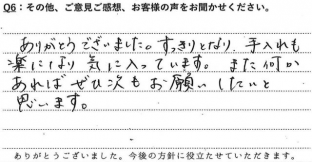 Q6：その他、ご意見ご感想、お客様の声をお聞かせください。
ありがとうございました。すっきりとなり、手入れも
楽になり気に入っています。また何か
あればぜひ次もお願いしたいと
思います。
ありがとうございました。今後の方針に役立たせていただきます。